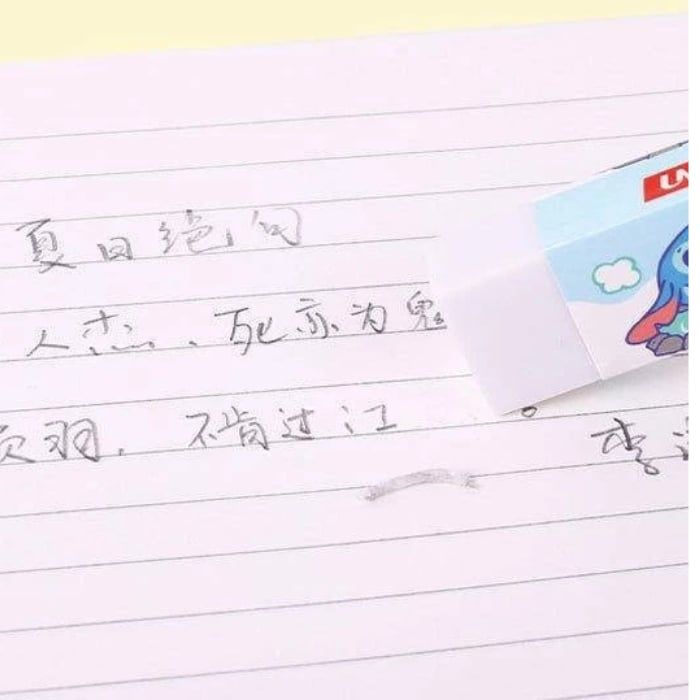 夏日绝句
人杰、死亦为鬼
项羽,不肯过江
李
UN